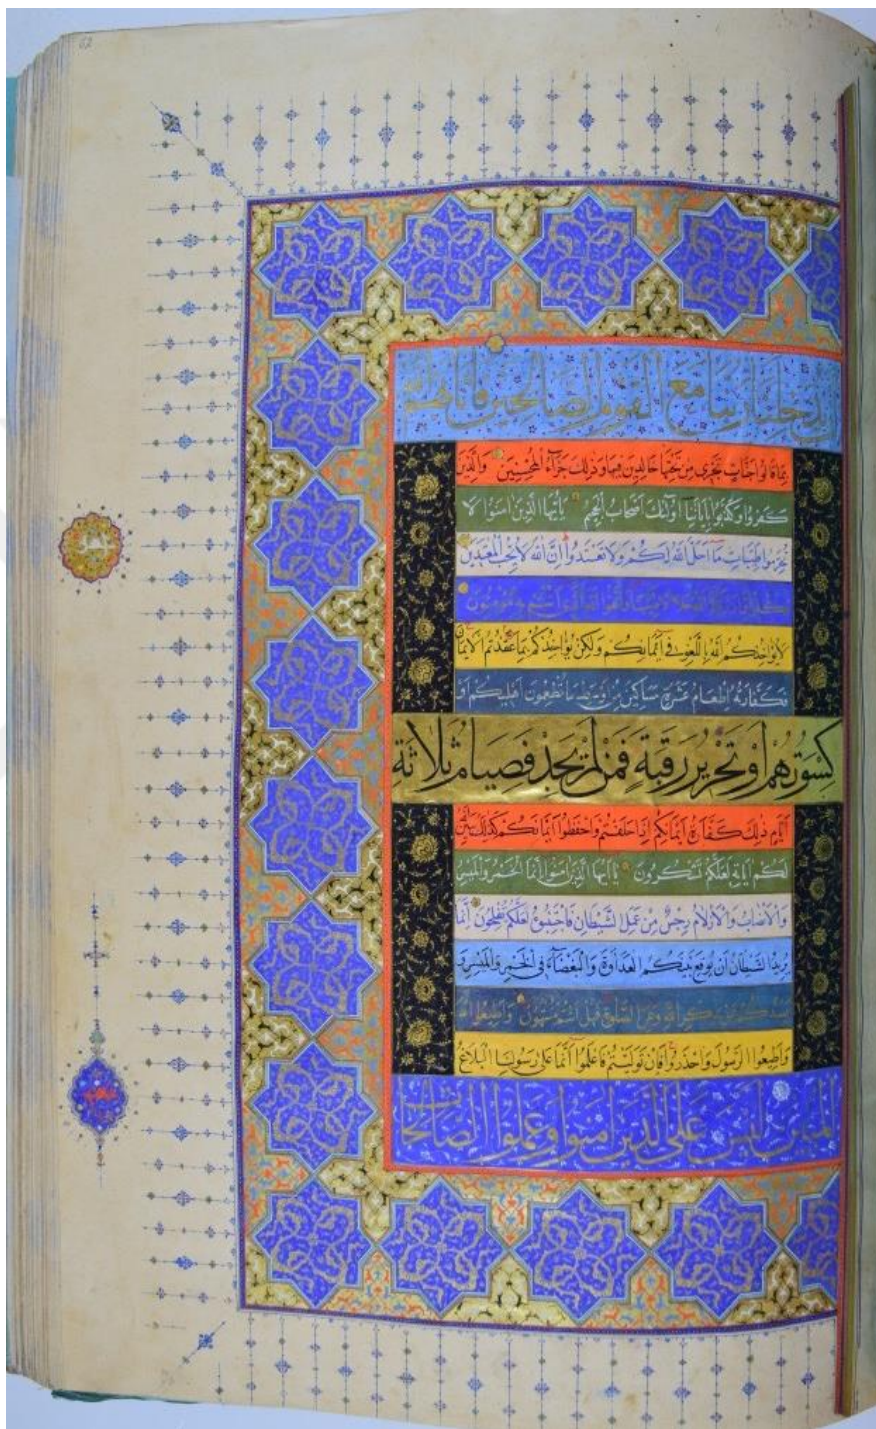 62
أَنْ يُدْخِلَنَا رَبُّنَا مَعَ الْقَوْمِ الصَّالِحِينَ فَأَثَابَهُمُ اللَّهُ
بِمَا قَالُوا جَنَّاتٍ تَجْرِى مِنْ تَحْتِهَا خَالِدِينَ فِيهَا وَذَلِكَ جَزَاءُ الْمُحْسِنِينَ وَالَّذِينَ
كَفَرُوا وَكَذَّبُوا بِاٰيَاتِنَا اُولٰئِكَ اَصْحَابُ الْجَحِيمِ يَا اَيُّهَا الَّذِينَ اٰمَنُوا لَا
تُحَرِّمُوا طَيِّبَاتِ مَا اَحَلَّ اللهُ لَكُمْ وَلَا تَعْتَدُوا اِنَّ اللهَ لَا يُحِبُّ الْمُعْتَدِينَ
وَكُلُوا مِمَّا رَزَقَكُمُ اللهُ حَلَالًا طَيِّبًا وَاتَّقُوا اللهَ الَّذِى اَنْتُمْ بِهِ مُؤْمِنُونَ
لَا يُؤَاخِذُكُمُ اللهُ بِاللَّغْوِ فِى اَيْمَانِكُمْ وَلٰكِنْ يُؤَاخِذُكُمْ بِمَا عَقَّدْتُمُ الْاَيْمَانَ
فَكَفَّارَتُهُ اِطْعَامُ عَشَرَةِ مَسَاكِينَ مِنْ اَوْسَطِ مَا تُطْعِمُونَ اَهْلِيكُمْ اَوْ
كِسْوَتُهُمْ اَوْ تَحْرِيرُ رَقَبَةٍ فَمَنْ لَمْ يَجِدْ فَصِيَامُ ثَلَاثَةِ
اَيَّامٍ ذٰلِكَ كَفَّارَةُ اَيْمَانِكُمْ اِذَا حَلَفْتُمْ وَاحْفَظُوا اَيْمَانَكُمْ كَذٰلِكَ يُبَيِّنُ اللهُ
لَكُمْ اٰيَاتِهِ لَعَلَّكُمْ تَشْكُرُونَ يَا اَيُّهَا الَّذِينَ اٰمَنُوا اِنَّمَا الْخَمْرُ وَالْمَيْسِرُ
وَالْاَنْصَابُ وَالْاَزْلَامُ رِجْسٌ مِنْ عَمَلِ الشَّيْطَانِ فَاجْتَنِبُوهُ لَعَلَّكُمْ تُفْلِحُونَ اِنَّمَا
يُرِيدُ الشَّيْطَانُ اَنْ يُوقِعَ بَيْنَكُمُ الْعَدَاوَةَ وَالْبَغْضَاءَ فِى الْخَمْرِ وَالْمَيْسِرِ وَ
يَصُدَّكُمْ عَنْ ذِكْرِ اللهِ وَعَنِ الصَّلٰوةِ فَهَلْ اَنْتُمْ مُنْتَهُونَ وَاَطِيعُوا اللهَ
وَاَطِيعُوا الرَّسُولَ وَاحْذَرُوا فَاِنْ تَوَلَّيْتُمْ فَاعْلَمُوا اَنَّمَا عَلٰى رَسُولِنَا الْبَلَاغُ
الْمُبِينُ لَيْسَ عَلَى الَّذِينَ اٰمَنُوا وَعَمِلُوا الصَّالِحَاتِ